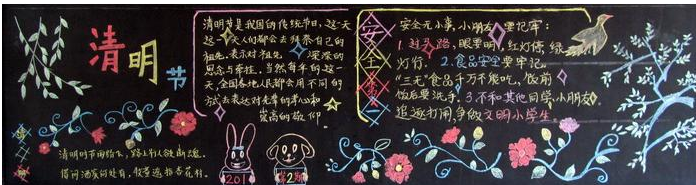 清明节
清明时节雨纷纷，路上行人欲断魂。
借问酒家何处有，牧童遥指杏花村。
清明节是我国的传统节日，这一天
人们都会去拜祭自己的
祖先，表示对祖先深深的
思念与寄托。当然每年的这一
天，全国各地人民都会用不同的
方式表达对先辈的孝心和
崇高的敬仰。
2012
安全
安全无小事，小朋友要记牢：
1.过马路，眼要明，红灯停，绿
灯行。2.食品安全要牢记，
“三无”食品千万不能吃，饭前
饭后要洗手。3.不和其他同学、小朋友
追逐打闹，争做文明小学生。